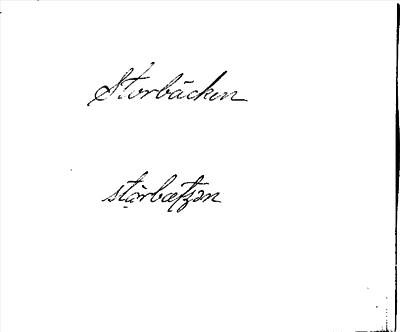 Storbäcken
stǫrbætʒən